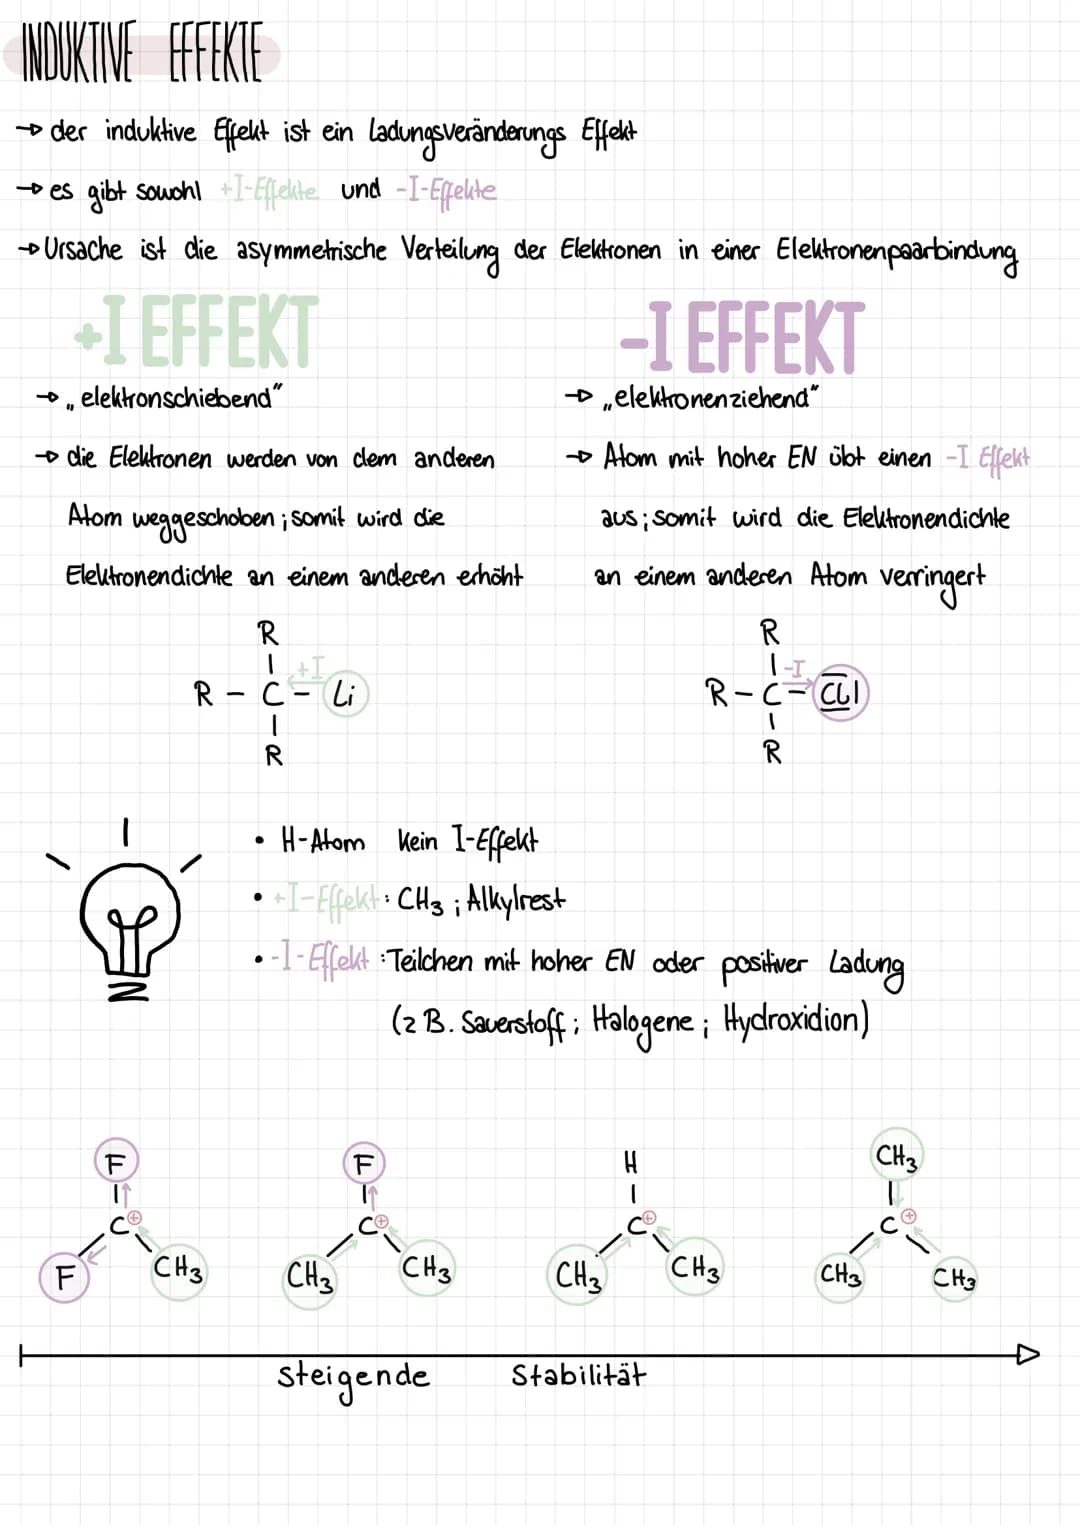 INDUKTIVE EFFEKTE
→ der induktive Effekt ist ein Ladungsveränderungs Effekt
→ es gibt sowohl +I-Effekte und -I-Effekte
→ Ursache ist die asymmetrische Verteilung der Elektronen in einer Elektronenpaarbindung
+I EFFEKT
→ „elektronschiebend“
→ die Elektronen werden von dem anderen
Atom weggeschoben ; somit wird die
Elektronendichte an einem anderen erhöht
R
+I
R - C - Li
R
-I EFFEKT
→ „elektronenziehend“
→ Atom mit hoher EN übt einen -I Effekt
aus ; somit wird die Elektronendichte
an einem anderen Atom verringert
R
-I
R - C - Cl
R
• H-Atom kein I-Effekt
• +I-Effekt : CH3 ; Alkylrest
• -I-Effekt : Teilchen mit hoher EN oder positiver Ladung
(z B. Sauerstoff ; Halogene ; Hydroxidion)
F
C⊕
F CH3
F
C⊕
CH3 CH3
H
C⊕
CH3 CH3
CH3
C⊕
CH3 CH3
steigende Stabilität